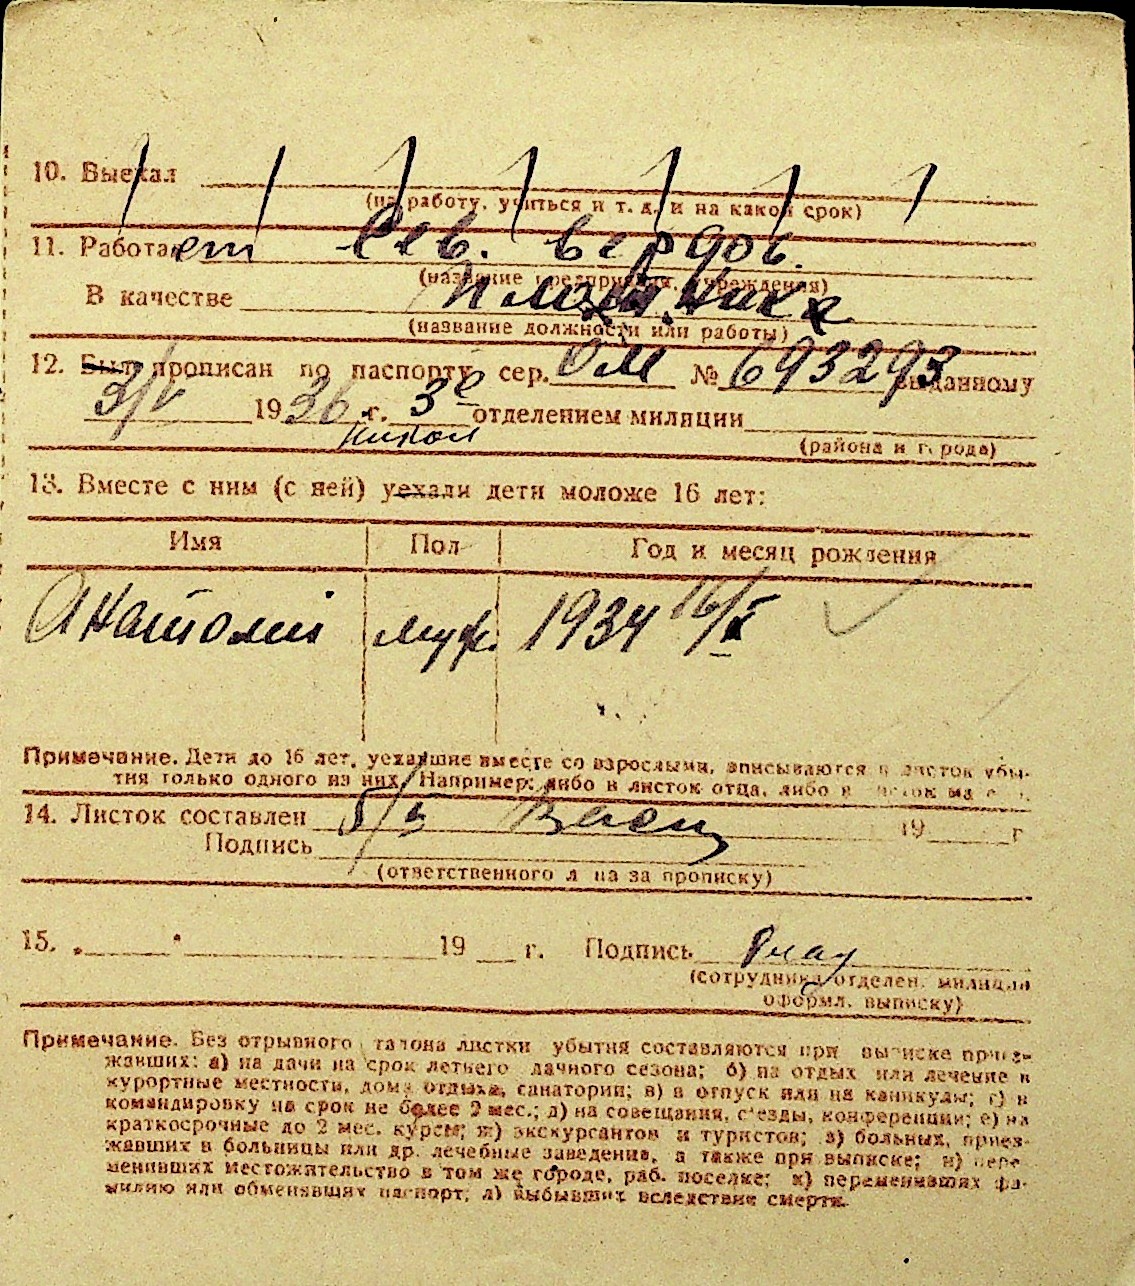 10. Выехал
(на работу, учиться и т. д. и на какой срок)
11. Работает Сев. верфь.
(название предприятия, учреждения)
В качестве плотника
(название должности или работы)
12. Был прописан по паспорту сер. ОМ № 693293 выданному
3/V 1936 г. 3е отделением милиции
(района и города)
13. Вместе с ним (с ней) уехали дети моложе 16 лет:
Имя Пол Год и месяц рождения
Анатолий муж. 1934 16/X
Примечание. Дети до 16 лет, уехавшие вместе со взрослыми, вписываются в листок убы-
тия только одного из них. Например: либо в листок отца, либо в листок
14. Листок составлен 5/5 19 г
Подпись
(ответственного лица за прописку)
15. „ " 19 г. Подпись
(сотрудника отделен. милиции
оформл. выписку)
Примечание. Без отрывного талона листки убытия составляются при выписке приез-
жавших: а) на дачи на срок летнего дачного сезона; б) на отдых или лечение в
курортные местности, дома отдыха, санатории; в) в отпуск или на каникулы; г) в
командировку на срок не более 2 мес.; д) на совещания, съезды, конференции; е) на
краткосрочные до 2 мес. курсы; ж) экскурсантов и туристов; з) больных, приез-
жавших в больницы или др. лечебные заведения, а также при выписке; и) пере-
менивших местожительство в том же городе, раб. поселке; к) переменивших фа-
милию или обменявших паспорт; л) выбывших вследствие смерти.